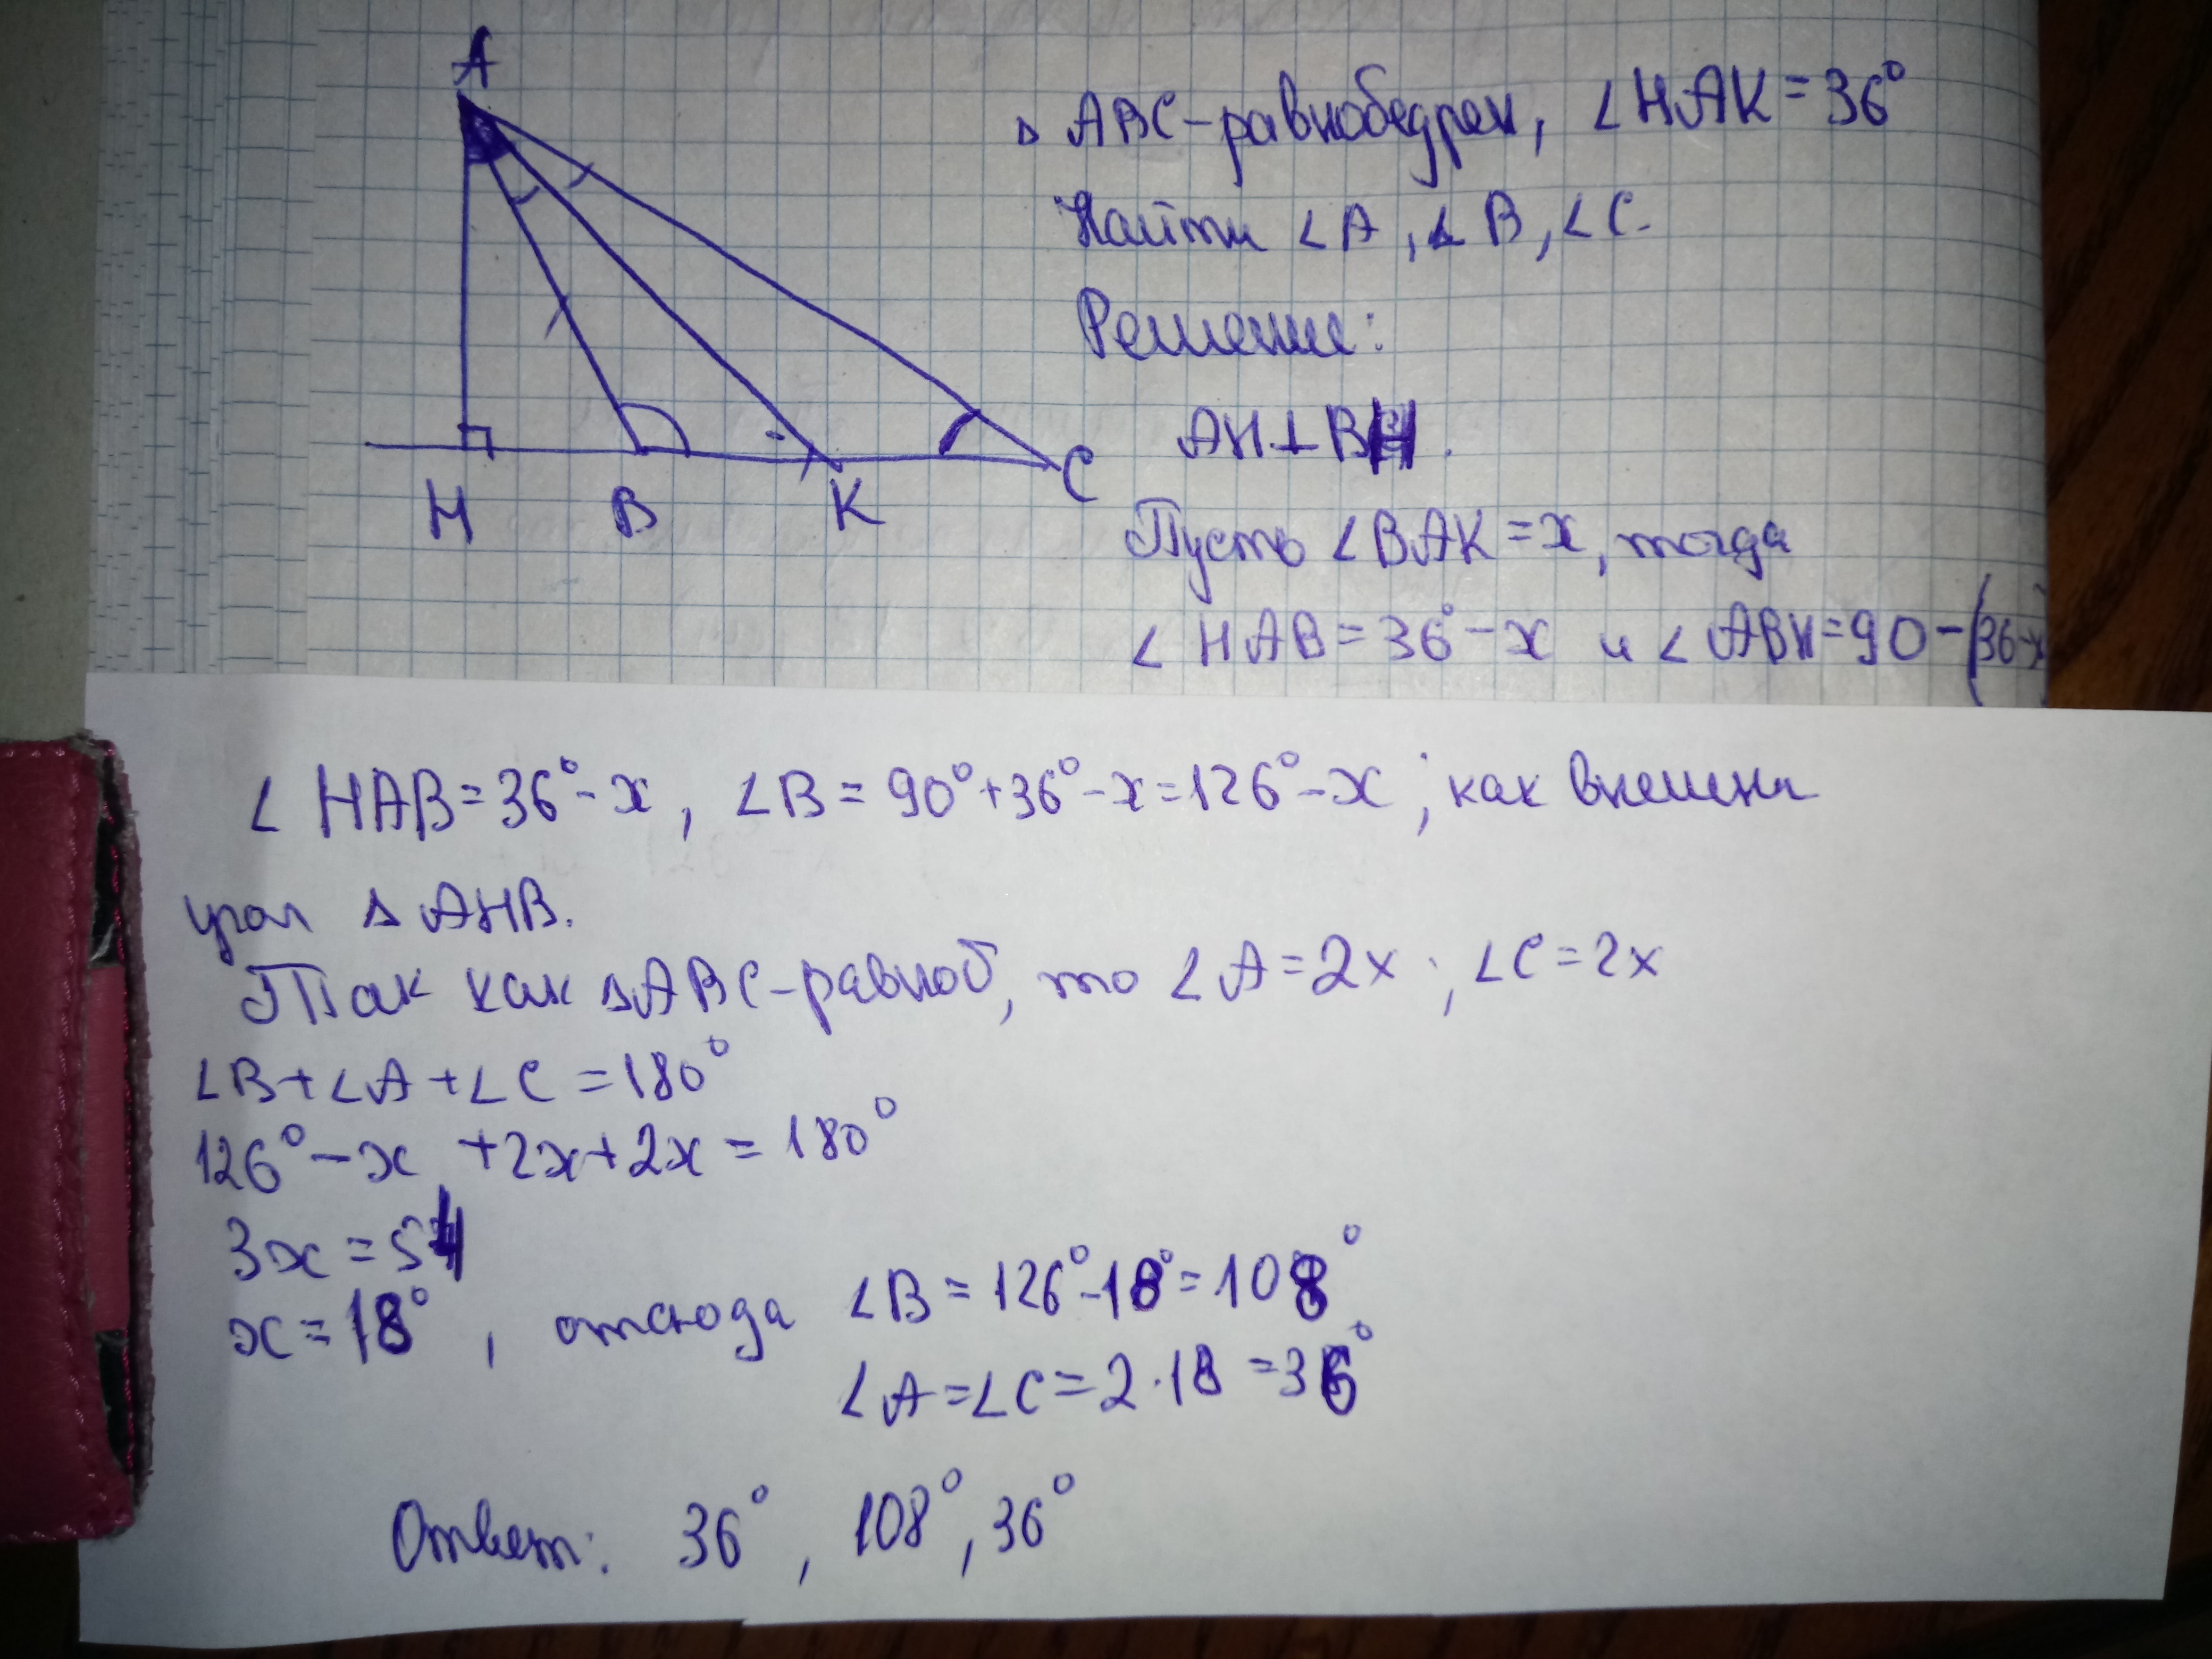 A
H B K C
Δ ABC-равнобедрен, ∠HAK=36°
Найти ∠A, ∠B, ∠C.
Решение:
AH⊥BH.
Пусть ∠BAK=x, тогда
∠HAB=36°-x и ∠ABH=90-(36-x)
∠HAB=36°-x, ∠B=90°+36°-x=126°-x, как внешни
угол Δ AHB.
Так как ΔABC-равноб, то ∠A=2x; ∠C=2x
∠B+∠A+∠C=180°
126°-x +2x+2x=180°
3x=54
x=18°, отсюда ∠B=126°-18°=108°
∠A=∠C=2·18=36°
Ответ: 36°, 108°, 36°